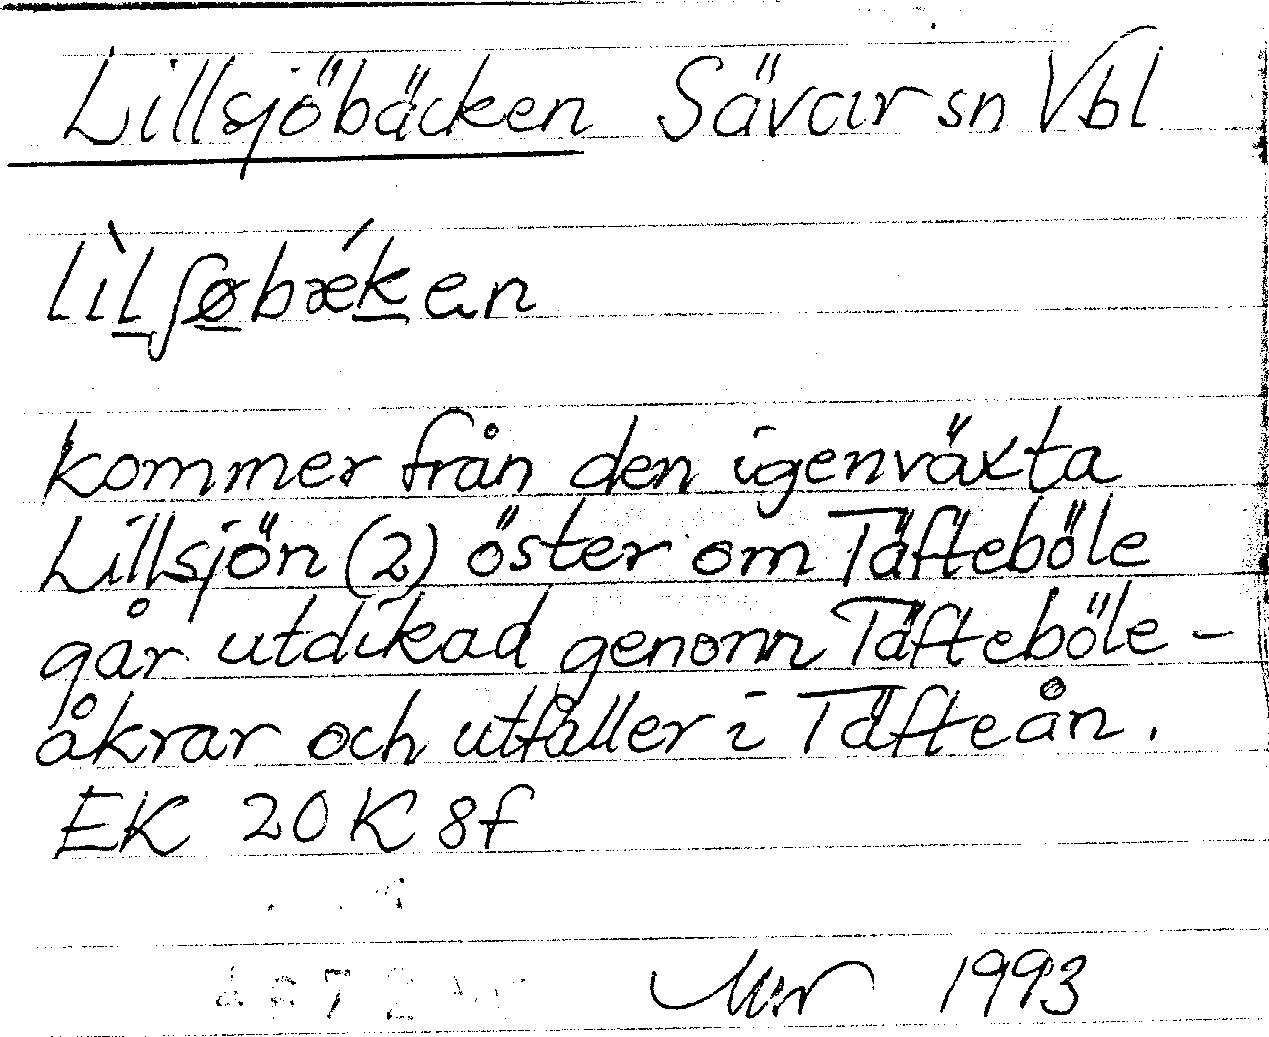 Lillsjöbäcken Sävar sn Vbl
lìlʃøbǽken
kommer från den igenväxta
Lillsjön (2) öster om Täfteböle
går utdikad genom Täfteböle-
åkrar och utfaller i Täfteån.
EK 20K 8f
1993